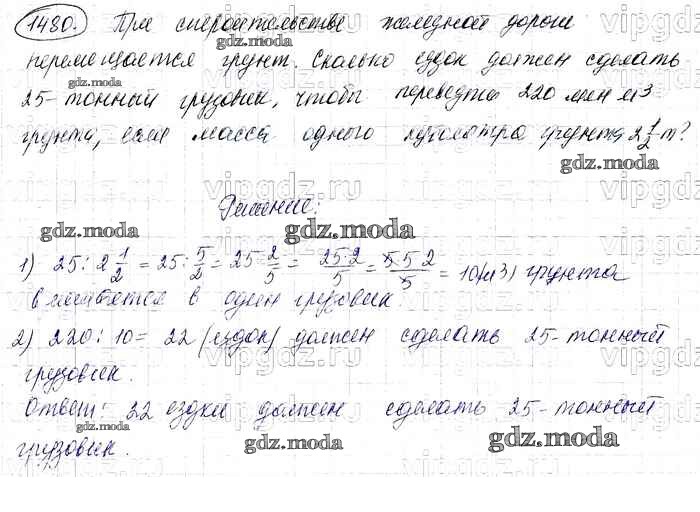 1480. При строительстве железной дороги
перемещается грунт. Сколько ездок должен сделать
25-тонный грузовик, чтобы перевезти 220 млн м3
грунта, если масса одного кубометра грунта 2 1/2 т?
Решение:
1) 25 : 2 1/2 = 25 : 5/2 = 25 2/5 = 25·2/5 = 5·5 2/5 = 10(м3) грунта
вмещается в один грузовик.
2) 220 : 10 = 22 (ездок) должен сделать 25-тонный
грузовик.
Ответ: 22 ездки должен сделать 25-тонный
грузовик.
gdz.moda
vipgdz.ru